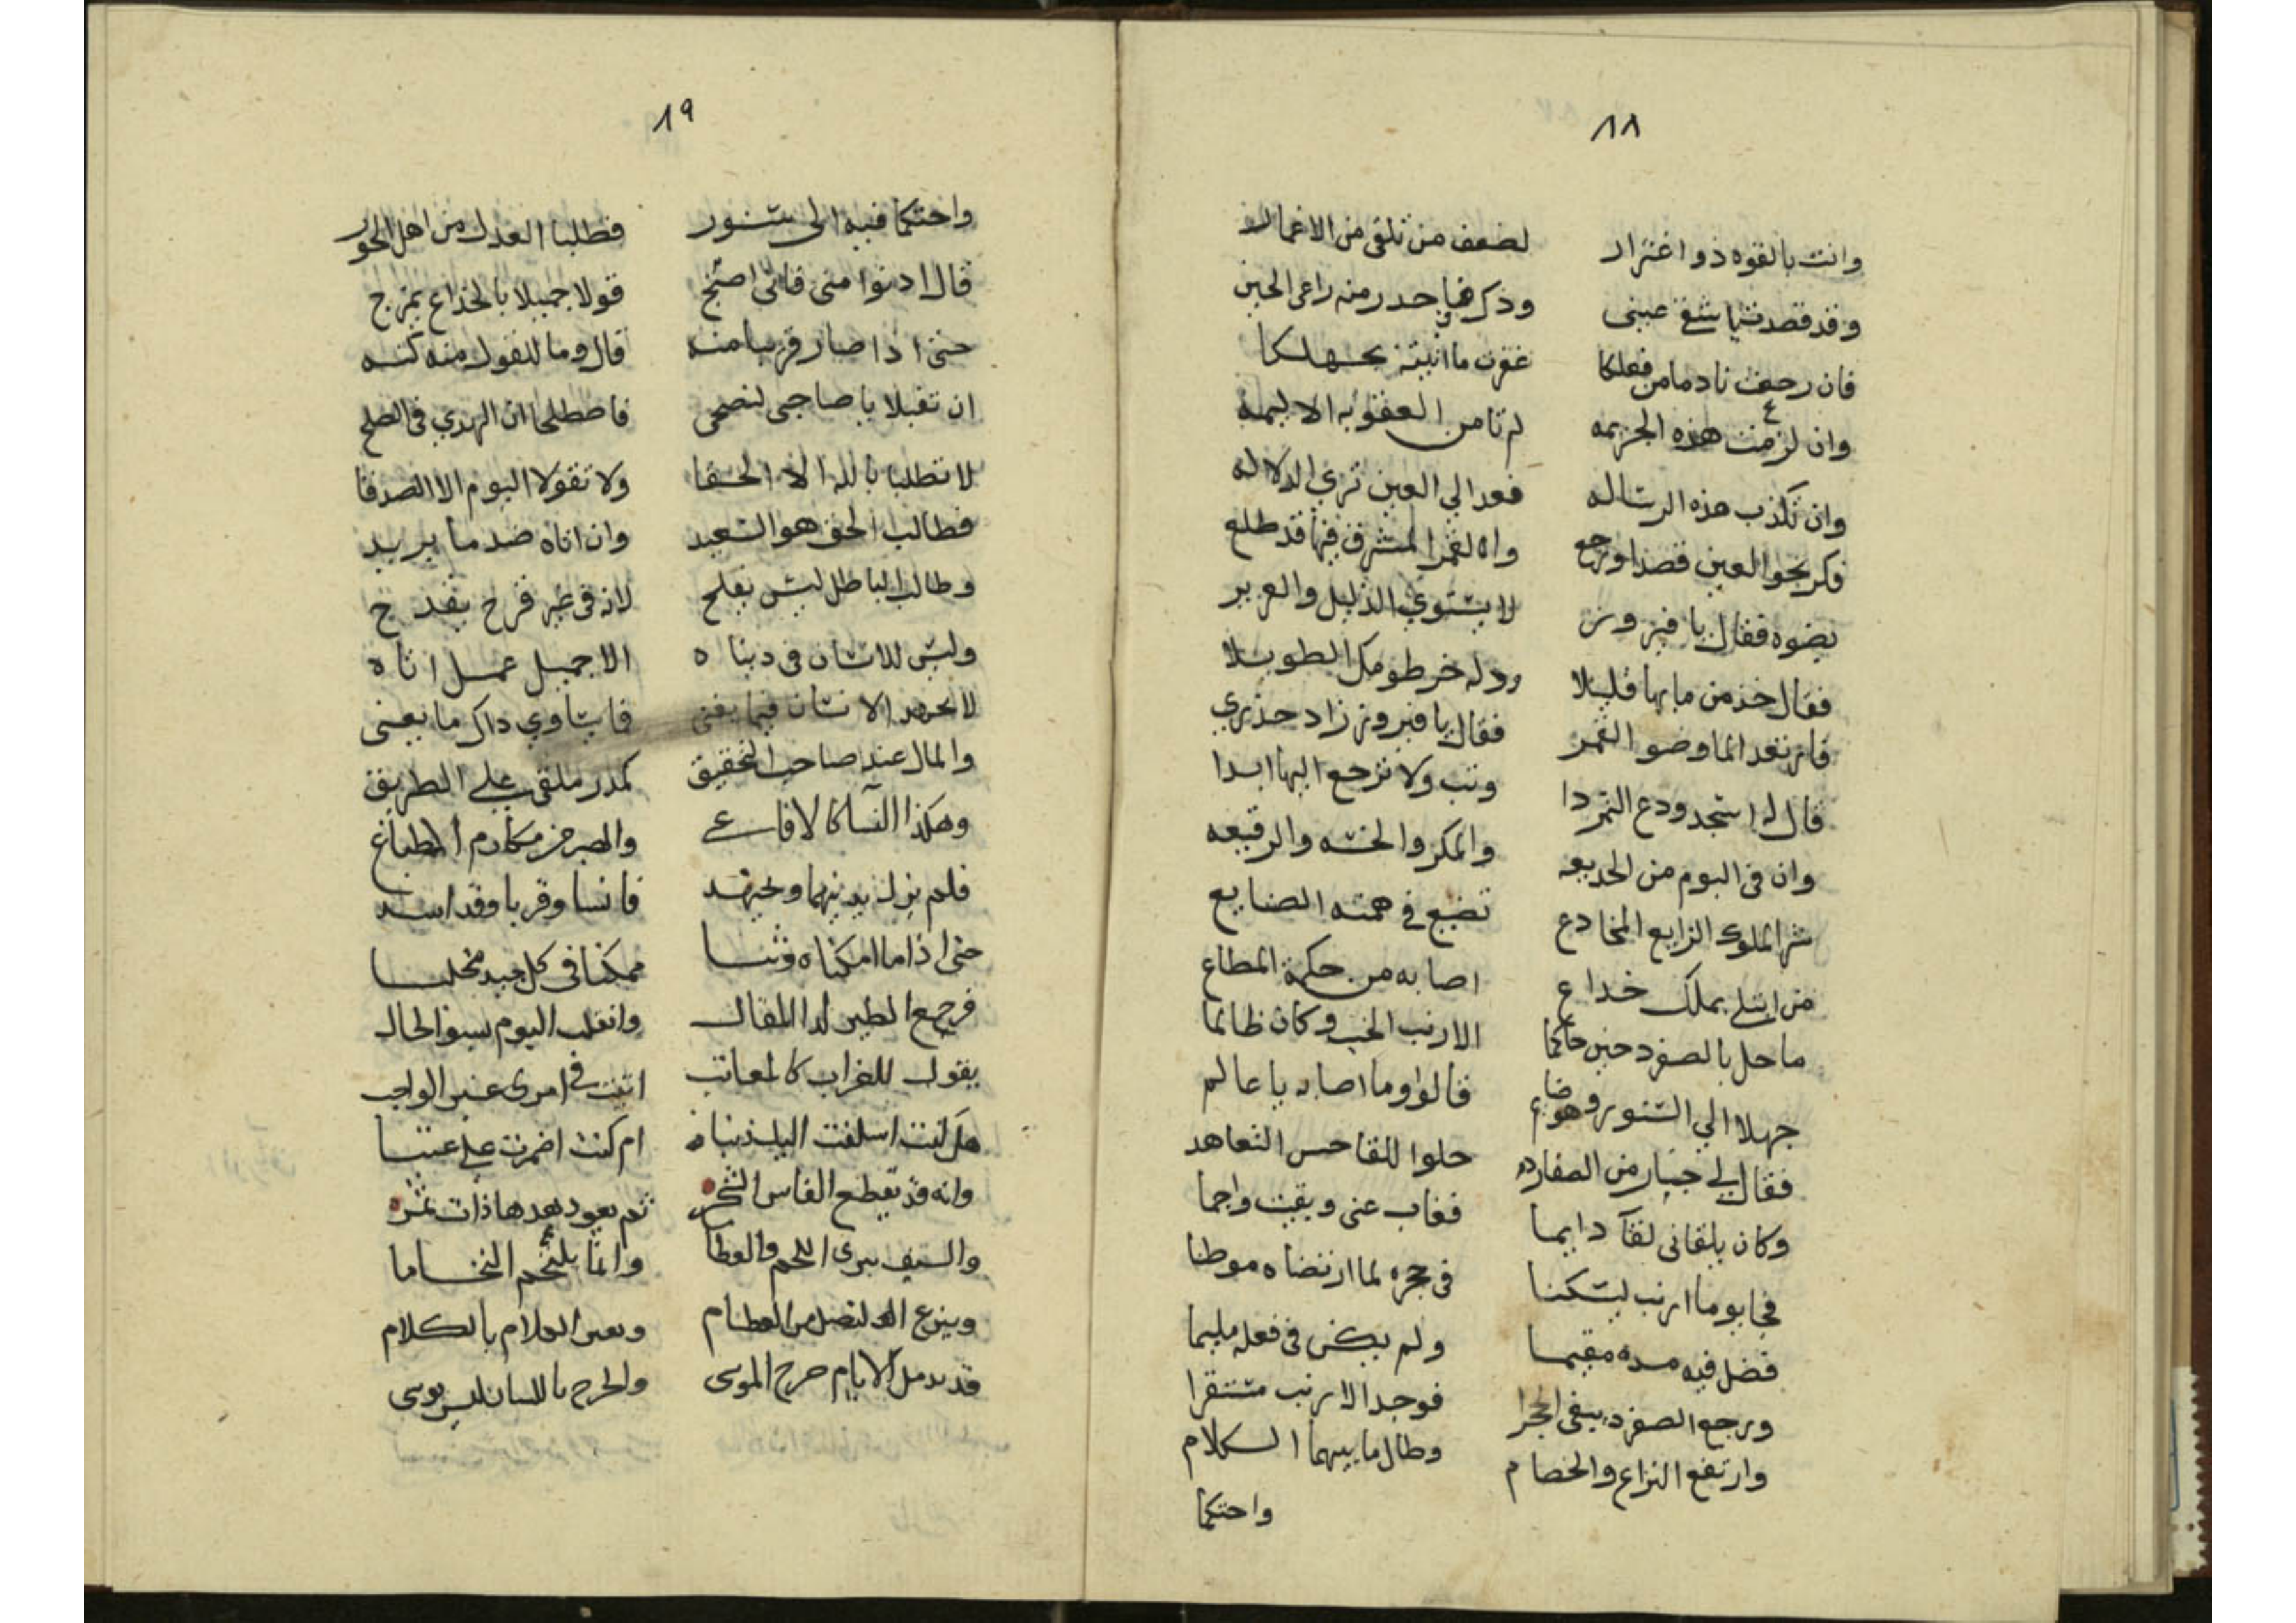 ١٨
وانت بالقوه ذو اغترار لضعف من تلقى من الاغمار
وقد قصدتها شق عينى وذكرها حدر منه راعى الحين
فان رجعت نادما من فعلكا غفرت ما اتيته بجهلكا
وان لزمت هذه الجريمه لم تامن العقوبه الاليمه
وان تكذب هذه الرساله فعد الي العين تري الدلاله
فكر نحو العين قصدا ورجع واه لقمر المشرق فيها قد طلع
بضوه فقال يا فيروز لا يستوي الذليل والعزيز
فقال خذ من مايها قليلا ود له خرطومك الطويلا
فارتعد الما وضو القمر فقال يا فيروز زاد حذري
قال له اسجد ودع التمردا وتب ولا ترجع اليها ابدا
وان فى البوم من الخديعه والمكر والخسه والوقيعه
شر الملوك الرابع المخادع تضيع في همته الصنايع
من ابتلي بملك خداع اصابه من حكمة المطاع
ما حل بالصفرد حين حاكما الارنب الخب وكان ظالما
جهلا الي السنور وهو صايم قالوا وما اصابه يا عالم
فقال لي جار من الصفارده حلوا اللقا حسن التعاهد
وكان يلقانى لقآ دايما فغاب عنى وبقيت واجما
فجا يوما ارنب ليسكنا فى جحره لما ارتضاه موطنا
فضل فيه مده مقيما ولم يكن فى فعله مليما
ورجع الصفرد يبغى الجحرا فوجد الارنب مستقرا
وارتفع النزاع والخصام وطال ما بينهما الكلام
واحتكما
١٩
واحتكما فيه الى سنور فطلبا العدل من اهل الجور
قال ادنوا منى فانى اصنج قولا جميلا بالخداع يمزج
حتى اذا صار قريبا منه قال وما للقول منه كنه
ان تقبلا يا صاحبى لنصحى فاصطلحا ان الهدي فى الصلح
لا تطلبا بالله الا الحقا ولا تقولا اليوم الا الصدقا
فطالب الحق هو السعيد وان اتاه ضد ما يريد
وطالب الباطل ليس يفلح لانه فى غير فرح يقدح
وليس للانسان فى دنياه الا جميل عمل اتاه
لا يجهد الانسان فيما يفنى فايساوي داك ما يعنى
والمال عند صاحب التحقيق كمدر ملقى على الطريق
وهكذا النسآ كالافاعى والصبر من مكارم الطباع
فلم يزل يدنيهما ويجتهد فانسا وقربا وقد اسد
حتى اذا ما امكناه وثبا ممكنا فى كل جيد مخلبا
فرجع الطير لدا المقال وانقلب اليوم بسو الحال
يقول للغراب كالمعاتب اتيت فى امرى غير الواجب
هل كنت اسلفت اليك ذنبا ام كنت اضمرت علي عتبا
وانه قد تقطع الفاس الشجره ثم يعود بعدها ذات ثمره
والسيف يبرى اللحم والعظاما وانما يلتحم التحاما
وينزع النصل من العظام الكلام بالكلام
قد يدمل الايام جرح الموسى والجرح باللسان ليس يوسى